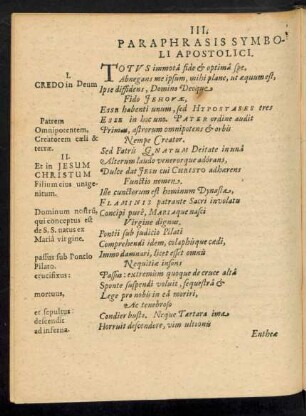 III.
PARAPHRASIS SYMBO-
LI APOSTOLICI.
I.
CREDO in Deum
Patrem
Omnipotentem,
Creatorem cæli &
terræ.
II.
Et in JESUM
CHRISTUM
Filium eius unige-
nitum.
Dominum nostrũ,
qui conceptus est
de S.S. natus ex
Mariâ virgine.
passus sub Pontio
Pilato.
crucifixus:
mortuus,
et sepultus:
descendit
ad inferna.
TOTVS immotâ fide & optimâ spe,
Abnegans me ipsum, mihi planè, ut æquum est,
Ipse diffidens, Domino Deoque
Fido JEHOVÆ,
ESSE habenti unum, sed HYPOSTASES tres
ESSE in hoc uno. PATER ordine audit
Primus, astrorum omnipotens & orbis
Nempe Creator.
Sed Patris GNATUM Deitate in unâ
Alterum laude venerorque adorans,
Dulce dat JESU cui CHRISTO adhærens
Functio nomen.
Ille cunctorum est hominum Dynasta,
FLAMINIS patrante Sacri involatu
Concipi purè, MARIAque nasci
Virgine dignus.
Pontii sub judicio Pilati
Comprehendi idem, colaphisque cædi,
Immo damnari, licet esset omnis
Nequitiæ insons
Passus: extremùm quoque de cruce altâ
Sponte suspendi voluit, sequestrâ &
Lege pro nobis in eâ moriri,
Ac tenebroso
Condier busto. Neque Tartara ima
Horruit descendere, vim ultronii
Entheæ